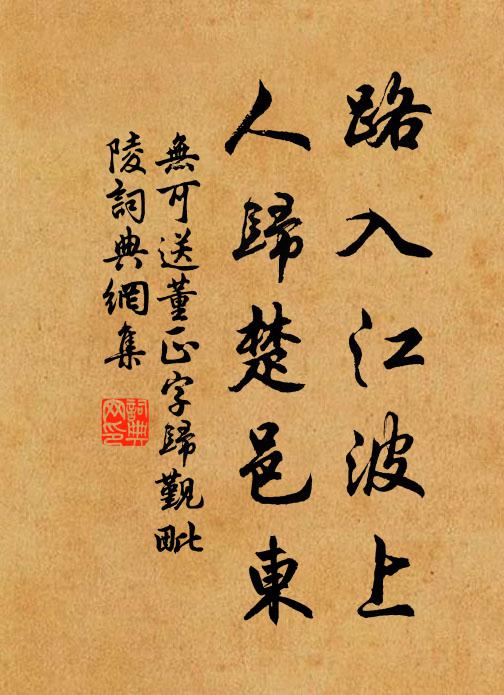 路入江波上
人歸楚邑東
無可送董正字歸觐毗
陵詞典網集
詞典
网印